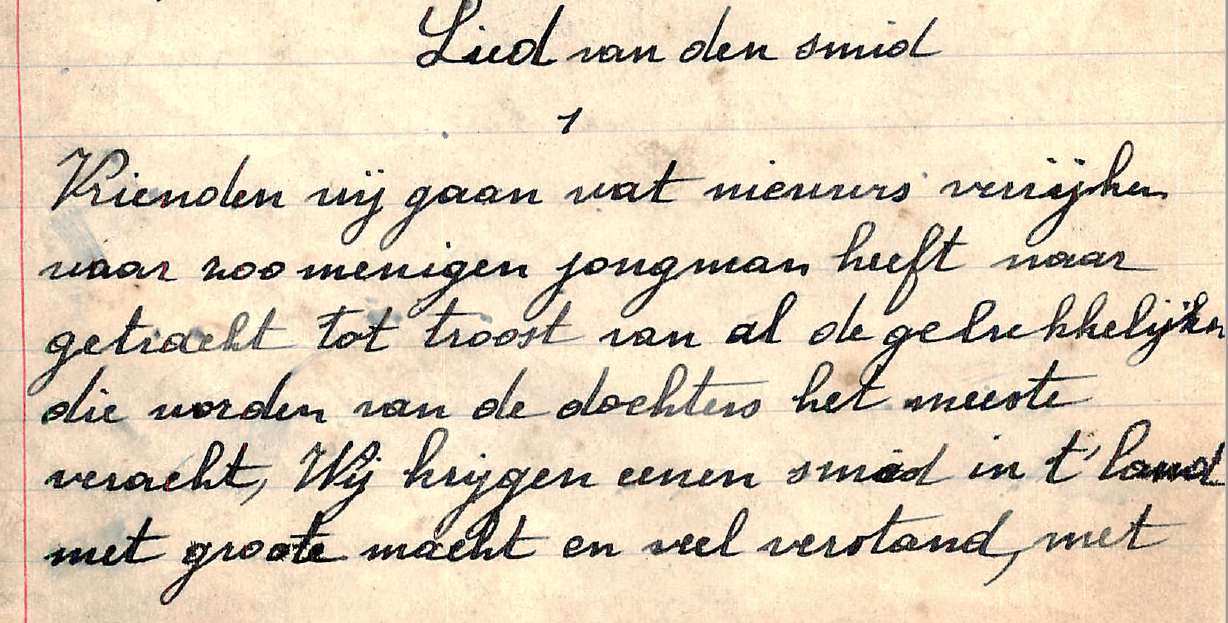 Lied van den smid
1
Vrienden wij gaan wat nieuws verrijken
waar zoo menigen jongman heeft naar
getracht tot troost van al de gelukkelijken
die worden van de dochters het meeste
veracht, Wij krijgen eenen smid in t' land
met groote macht en veel verstand, met